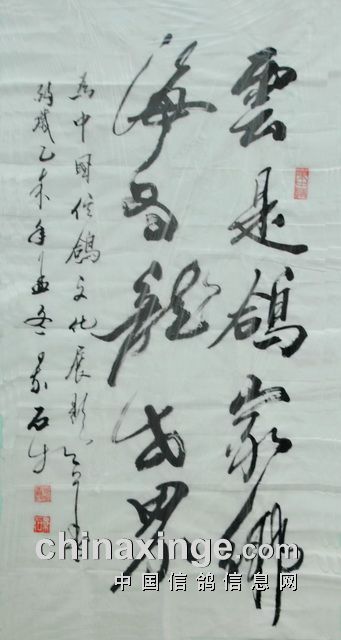 雲是鴿家鄉
海为龍世界
为中國信鴿文化展
歲乙未年孟冬
石
chinaxinge.com
中国信鸽信息网